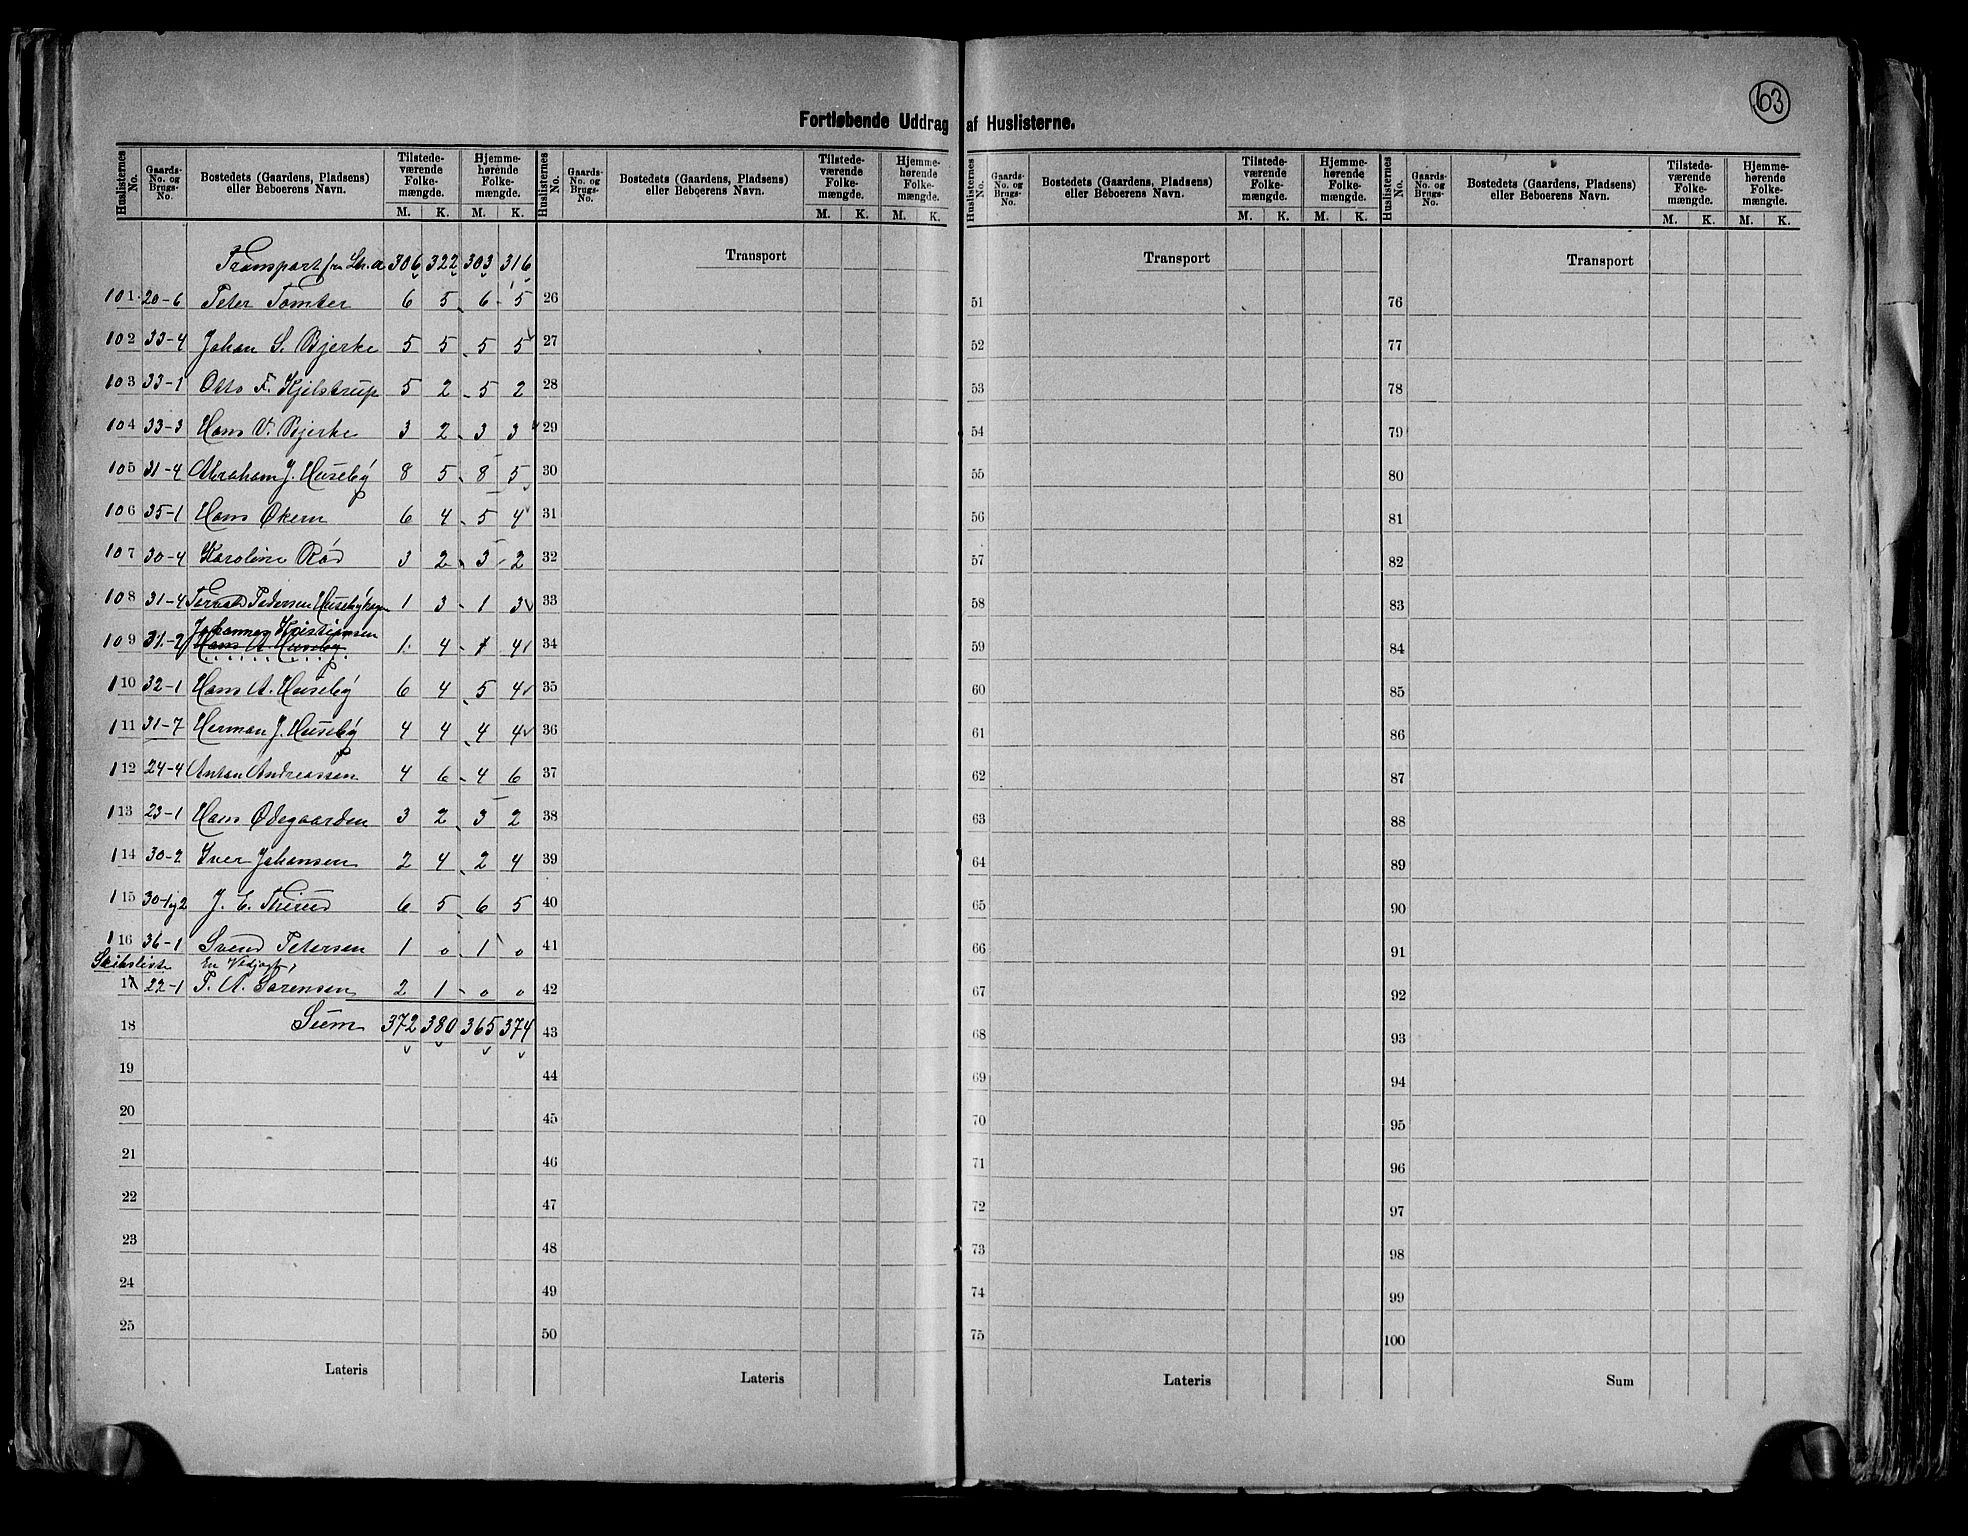 63
Fortløbende Uddrag af Huslisterne.
Huslisternes No. Gaards-No. og Brugs-No. Bostedets (Gaardens, Pladsens) eller Beboerens Navn. Tilstedeværende Folkemængde. M. K. Hjemmehørende Folkemængde. M. K.
Huslisternes No. Gaards-No. og Brugs-No. Bostedets (Gaardens, Pladsens) eller Beboerens Navn. Tilstedeværende Folkemængde. M. K. Hjemmehørende Folkemængde. M. K.
Huslisternes No. Gaards-No. og Brugs-No. Bostedets (Gaardens, Pladsens) eller Beboerens Navn. Tilstedeværende Folkemængde. M. K. Hjemmehørende Folkemængde. M. K.
Huslisternes No. Gaards-No. og Brugs-No. Bostedets (Gaardens, Pladsens) eller Beboerens Navn. Tilstedeværende Folkemængde. M. K. Hjemmehørende Folkemængde. M. K.
Transport fra Litr. a 306 322 303 316 Transport Transport Transport
101 20-6 Peter Tomter 6 5 6 5 26 51 76
102 33-4 Johan S. Bjerke 5 5 5 5 27 52 77
103 33-1 Otto F. Kjilstrup 5 2 5 2 28 53 78
104 33-3 Hans V. Bjerke 3 2 3 3 29 54 79
105 31-4 Abraham J. Huseby 8 5 8 5 30 55 80
106 35-1 Hans Økern 6 4 5 4 31 56 81
107 30-4 Karoline Rød 3 2 3 2 32 57 82
108 31-4 Pedersen Husebyhagen 1 3 1 3 33 58 83
Johannes Kristiansen
109 31-2 Hans A. Huseby 1 4 1 4 34 59 84
110 32-1 Hans A. Huseby 6 4 5 4 35 60 85
111 31-7 Herman J. Huseby 4 4 4 4 36 61 86
112 24-4 Anton Andreassen 4 6 4 6 37 62 87
113 23-1 Hans Ødegaarden 3 2 3 2 38 63 88
114 30-2 Iver Johansen 2 4 2 4 39 64 89
115 30-1 og 2 J. E. Thirud 6 5 6 5 40 65 90
116 36-1 Svend Petersen 1 0 1 0 41 66 91
Skibsliste En Vedjagt,
17 22-1 P. A. Sørensen 2 1 0 0 42 67 92
18 Sum 372 380 365 374 43 68 93
19 44 69 94
20 45 70 95
21 46 71 96
22 47 72 97
23 48 73 98
24 49 74 99
25 50 75 100
Lateris Lateris Lateris Sum